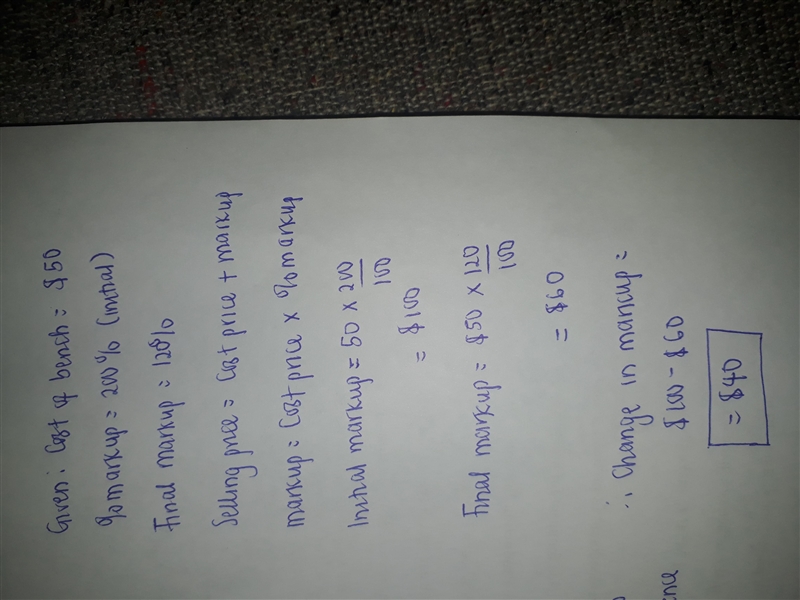 Given: Cost of bench = $50
% markup = 200% (initial)
Final markup = 120%
Selling price = Cost price + markup
markup = Cost price x % markup
Initial markup = 50 x 200/100
= $100
Final markup = $50 x 120/100
= $60
∴ Change in markup =
$100 - $60
= $40